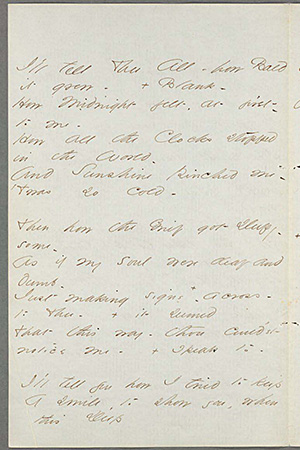 I'll tell Thee All - how Bald
it grew - + Blank -
How Midnight felt, at first -
to me -
How all the Clocks stopped
in the World -
And Sunshine Pinched me -
'Twas so cold -
Then how the Grief got sleepy -
some -
As if my soul were deaf and
dumb -
Just making signs - across -
to Thee - + it seemed
That this way - thou could'st
notice me - + speak to -
I'll tell you how I tried to keep
A smile, to show you, when
this Deep